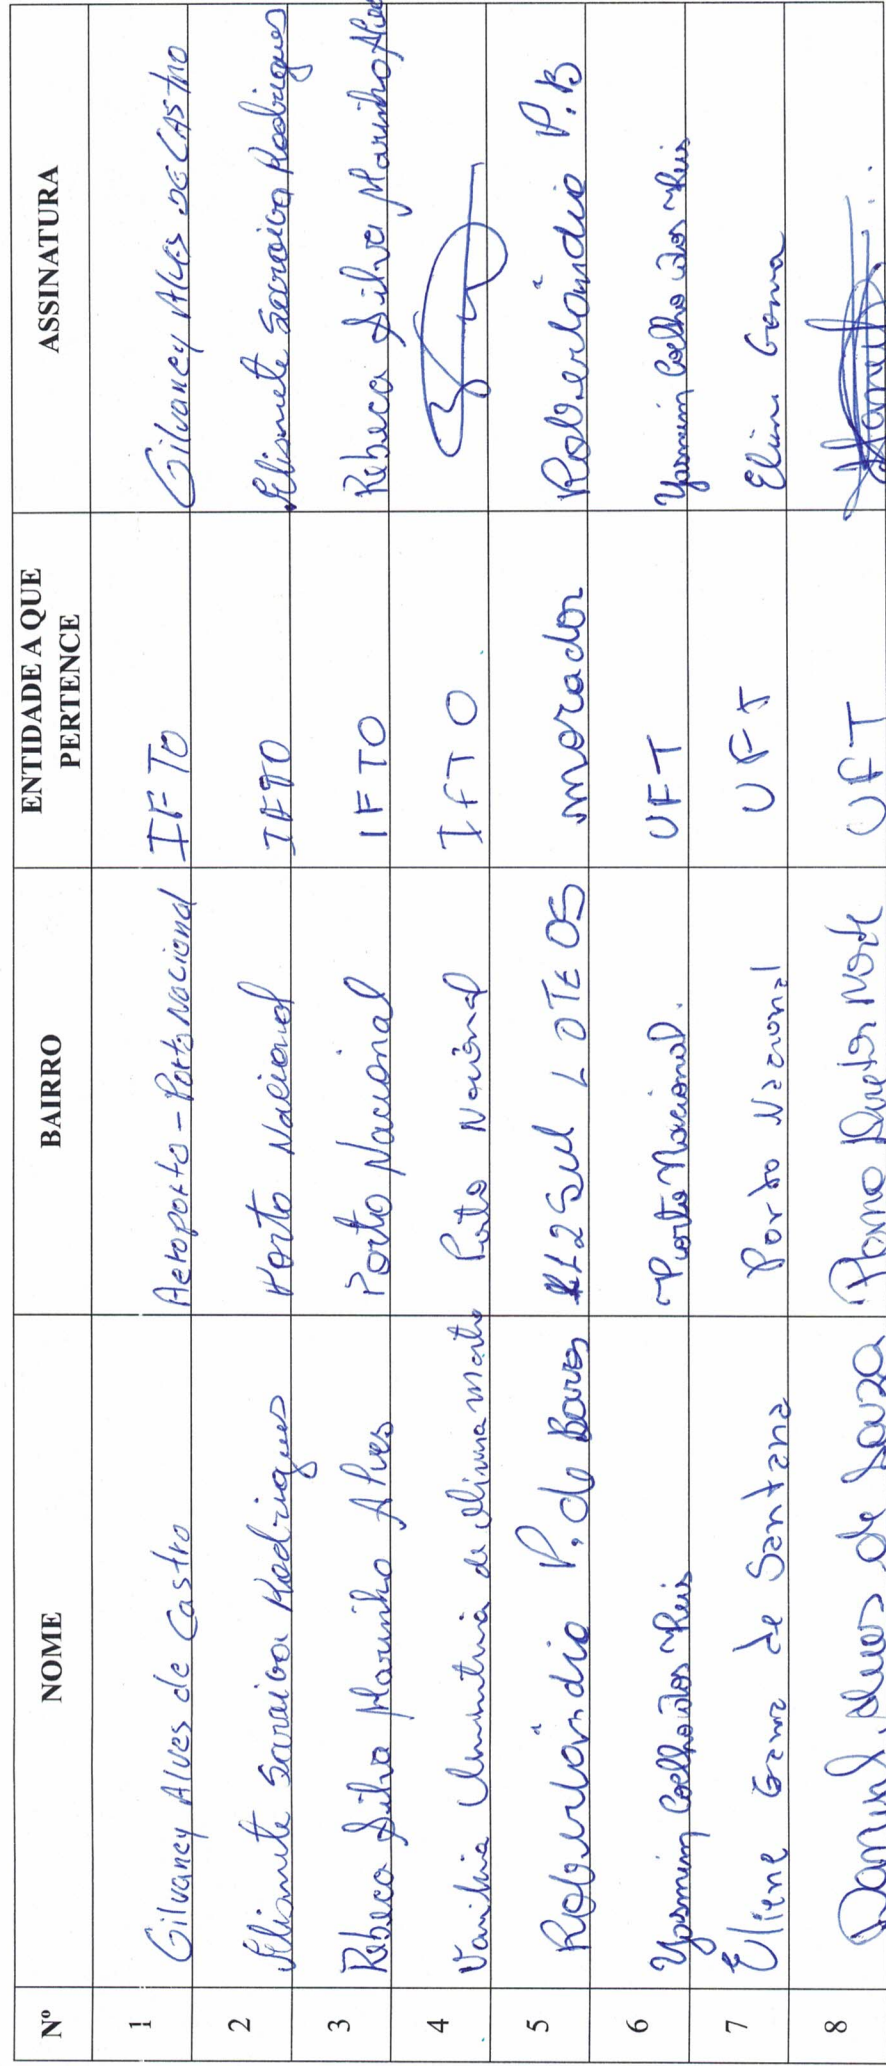 Nº NOME BAIRRO ENTIDADE A QUE PERTENCE ASSINATURA
1 Gilvaney Alves de Castro Aeroporto - Porto Nacional IFTO Gilvaney Alves DE CAStro
2 Elismete Saraiva Rodrigues Porto Nacional IFTO Elismete Saraiva Rodrigues
3 Rebeca Silva Marinho Alves Porto Nacional IFTO Rebeca Silva Marinho Alves
4 de Oliveira Porto Nacional IFTO
5 Roberlândio P. de Barros Sul LOTE 05 morador Roberlândio P.B
6 Yasmim Coelho dos Reis Porto Nacional. UFT Yasmim Coelho dos Reis
7 Eliene Gama de Santana Porto Nacional UFT Eliene Gama
8 Alves de Souza Plano Diretor Norte UFT